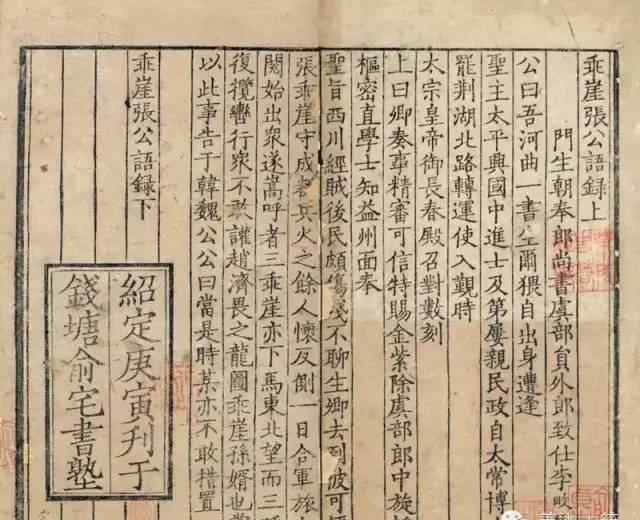 乖崖張公語錄上
門生朝奉郎尚書虞部員外郎致仕李畋
公曰吾河曲一書生爾猥自出身遭逢
聖主太平興國中進士及第屢親民政自太常博
罷荆湖北路轉運使入覲時
太宗皇帝御長春殿召對數刻
上曰卿奏事精審可信特賜金紫除虞部郎中旋
樞密直學士知益州面奉
聖旨西川經賊後民頗傷殘不聊生卿去到彼可
張乖崖守成都兵火之餘人懷反側一日合軍旅
閱始出衆遂嵩呼者三乖崖亦下馬東北望而三
復攬轡行衆不敢讙趙濟畏之龍圖乖崖孫婿也嘗
以此事告于韓魏公公曰當是時某亦不敢措置
乖崖張公語錄下
紹定庚寅刋于
錢塘俞宅書塾